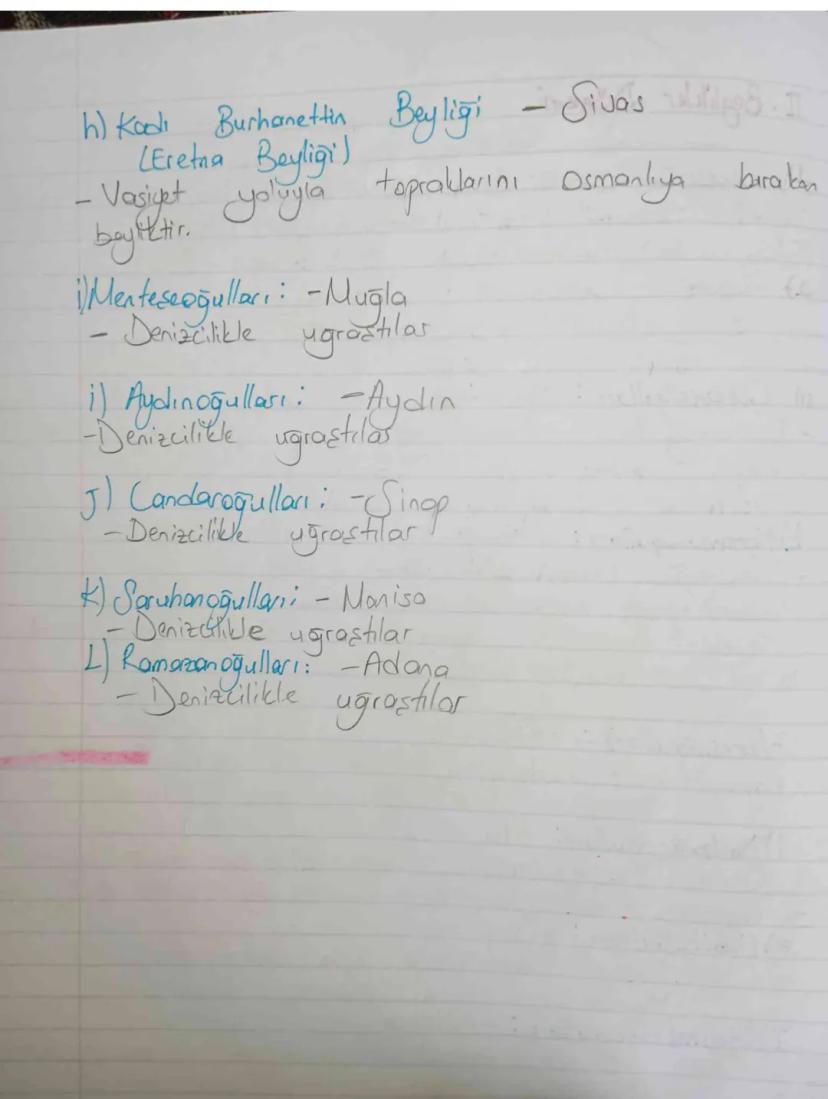 h) Kadı Burhanettin Beyliği - Sivas
(Eretna Beyliği)
- Vasiyet yoluyla topraklarını Osmanlıya bırakan
beyliktir.
i) Menteşeoğulları: - Muğla
- Denizcilikle uğraştılar
i) Aydınoğulları: - Aydın
- Denizcilikle uğraştılar
J) Candaroğulları: - Sinop
- Denizcilikle uğraştılar
K) Saruhanoğulları: - Manisa
- Denizcilikle uğraştılar
L) Ramazanoğulları: - Adana
- Denizcilikle uğraştılar